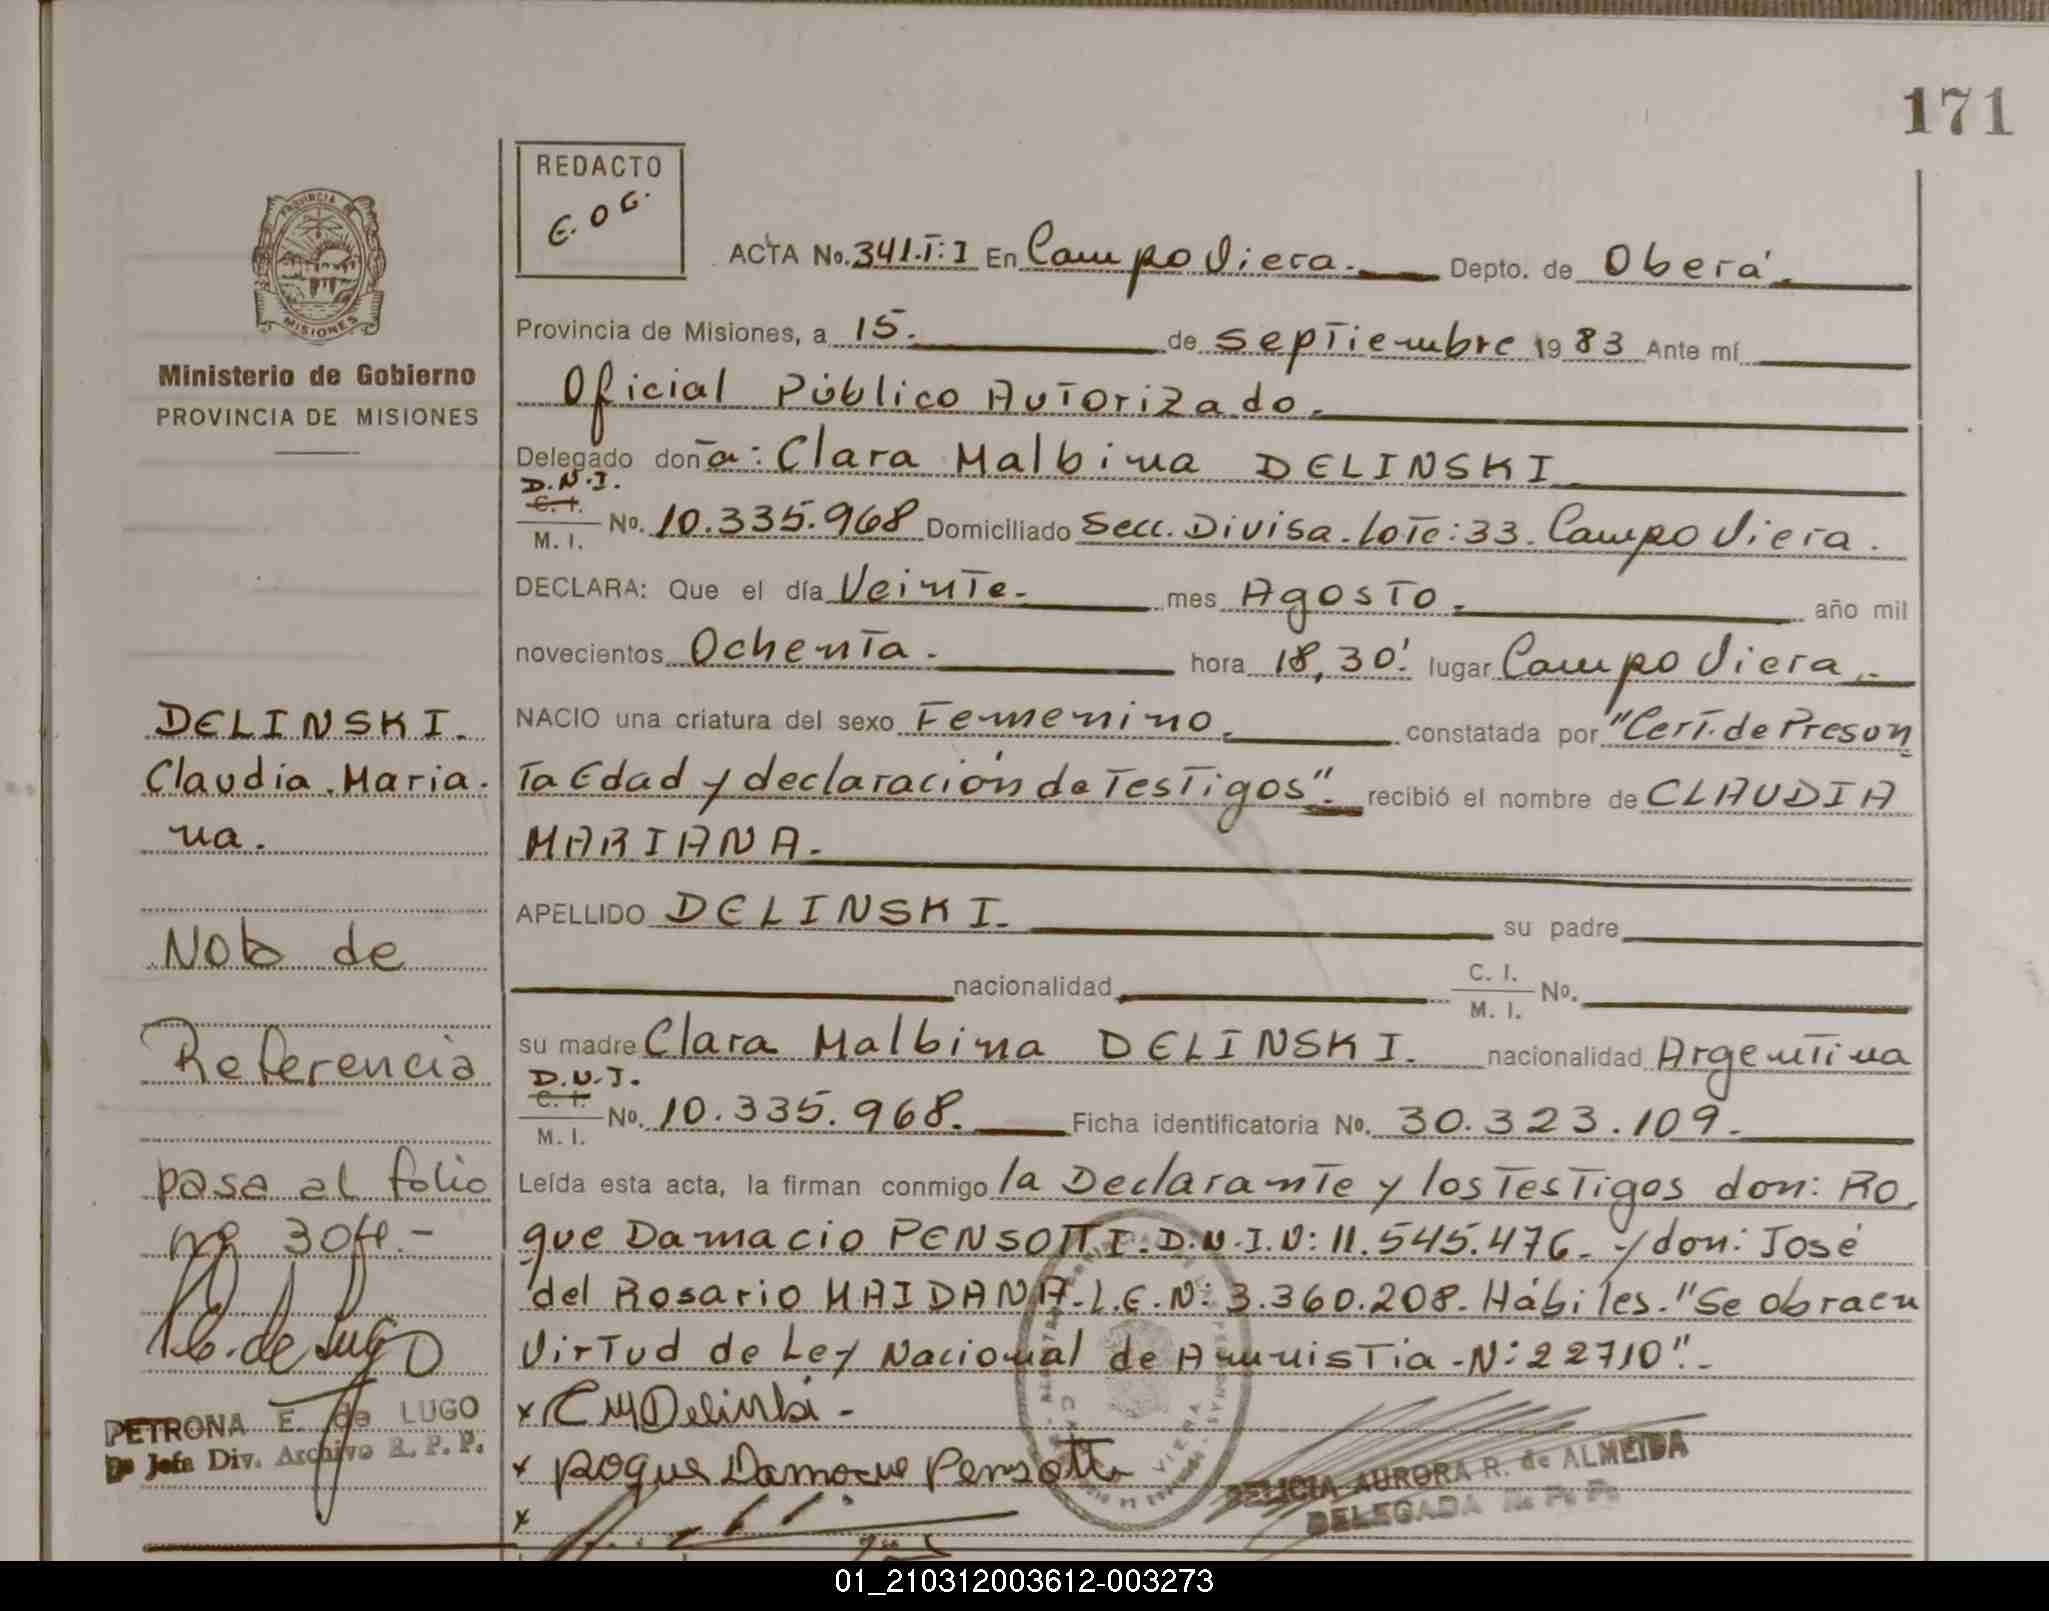 171
REDACTO
E.O.G.
ACTA No. 341.T:I En Campo Viera. Depto. de Oberá.
PROVINCIA DE
MISIONES
Ministerio de Gobierno
PROVINCIA DE MISIONES
Provincia de Misiones, a 15. de Septiembre 1983 Ante mí
Oficial Público Autorizado.
Delegado doña: Clara Malbina DELINSKI
D.N.I.
C. I.
M. I. No. 10.335.968 Domiciliado Secc. Divisa. Lote: 33. Campo Viera.
DECLARA: Que el día Veinte. mes Agosto. año mil
novecientos Ochenta. hora 18,30'. lugar Campo Viera.
NACIO una criatura del sexo Femenino. constatada por "Cert. de Presun
ta Edad y declaración de Testigos". recibió el nombre de CLAUDIA
MARIANA.
APELLIDO DELINSKI. su padre
nacionalidad C. I.
M. I. No.
su madre Clara Malbina DELINSKI. nacionalidad Argentina
D.N.I.
C. I.
M. I. No. 10.335.968. Ficha identificatoria No. 30.323.109.
Leída esta acta, la firman conmigo la Declarante y los Testigos don: Ro
que Damacio PENSOTTI. D.N.I.N: 11.545.476. y don: José
del Rosario MAIDANA. L.E.N: 3.360.208. Hábiles. "Se obra en
Virtud de Ley Nacional de Amnistia - N: 22710".
x CMDelinski -
x Roque Damacio Pensotti
x
DELINSKI.
Claudia Maria.
na.
Nob de
Referencia
pasa al folio
nº 304.-
PETRONA E. de LUGO
Jefa Div. Archivo R. P. P.
VIERA
DELICIA AURORA R. de ALMEIDA
DELEGADA R. P. P.
01_210312003612-003273